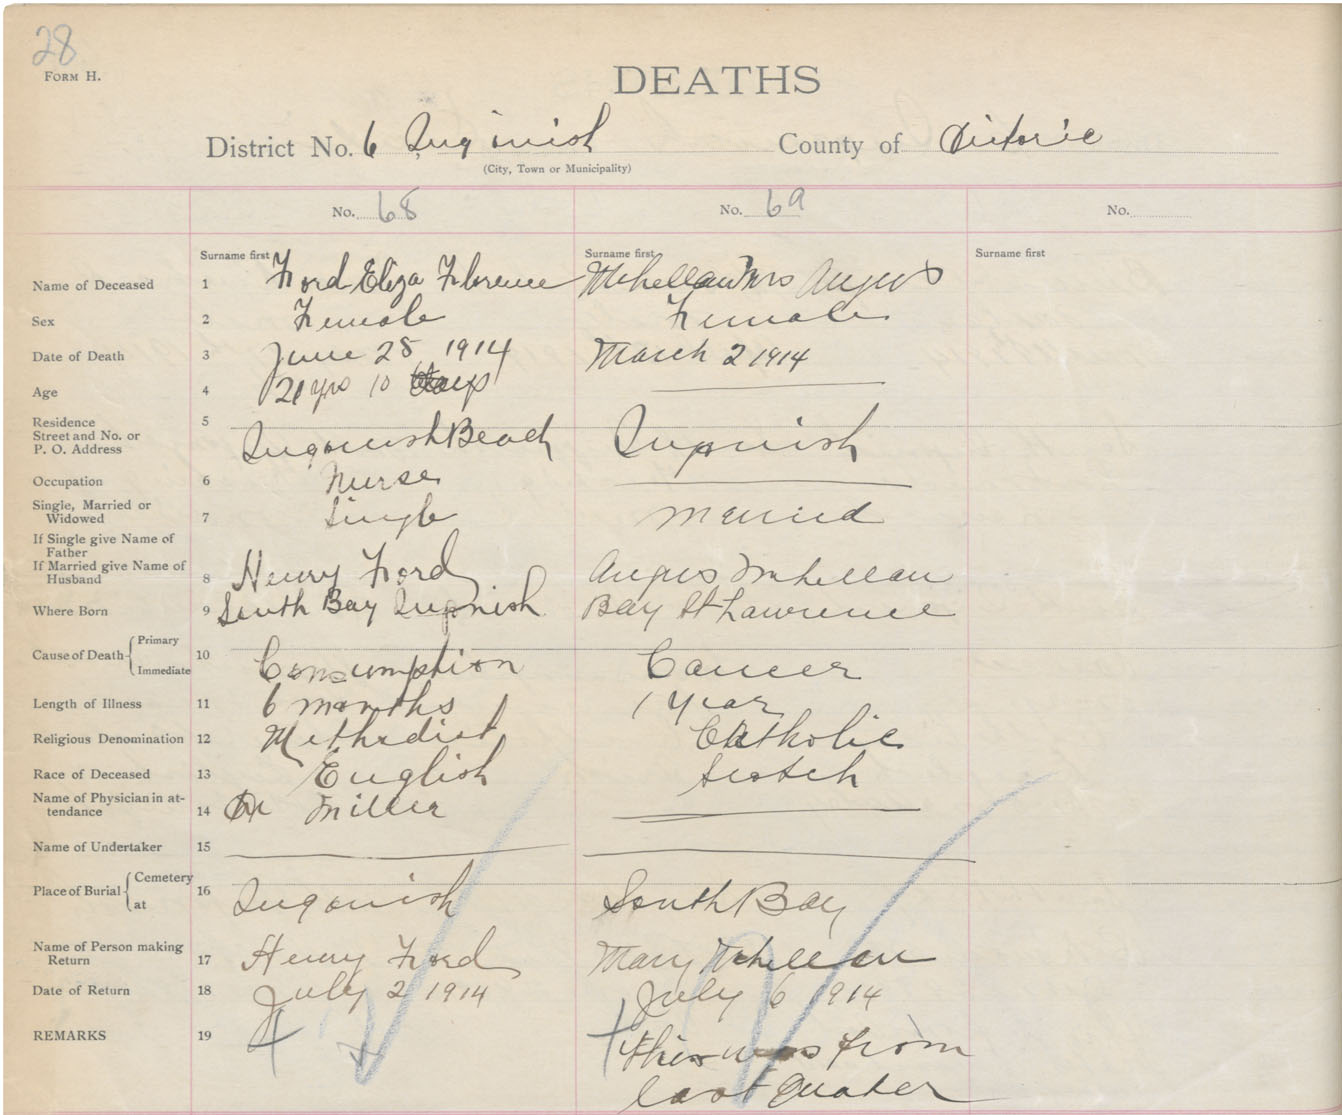 28
FORM H.
DEATHS
District No. 6 Ingonish County of Victoria
(City, Town or Municipality)
No. 68 No. 69 No.
Surname first Surname first Surname first
Name of Deceased 1 Ford Eliza Florence McLellan Mrs Angus
Sex 2 Female Female
Date of Death 3 June 28 1914 March 2 1914
Age 4 21 yrs 10 days
Residence 5
Street and No. or
P. O. Address Ingonish Beach Ingonish
Occupation 6 Nurse
Single, Married or
Widowed 7 Single Married
If Single give Name of
Father
If Married give Name of
Husband 8 Henry Ford Angus McLellan
Where Born 9 South Bay Ingonish Bay St Lawrence
Cause of Death Primary
Immediate 10 Consumption Cancer
Length of Illness 11 6 months 1 year
Religious Denomination 12 Methodist Catholic
Race of Deceased 13 English Scotch
Name of Physician in at-
tendance 14 Dr Miller
Name of Undertaker 15
Place of Burial Cemetery
at 16 Ingonish South Bay
Name of Person making
Return 17 Henry Ford Mary McLellan
Date of Return 18 July 2 1914 July 6 1914
REMARKS 19 this was from
last Quater